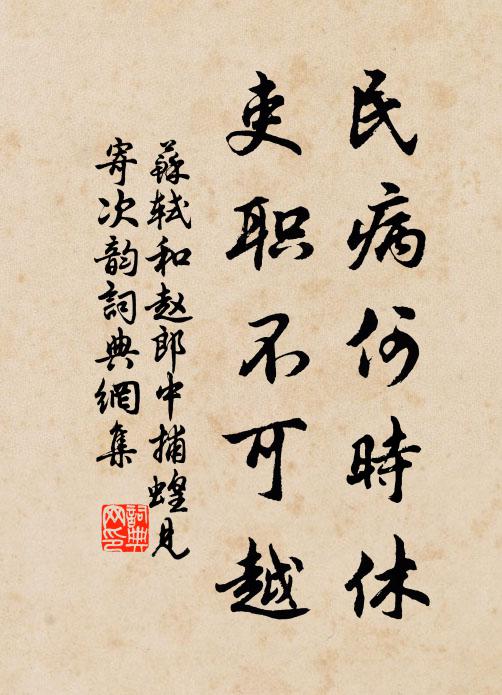 民病何時休
吏职不可越
蘇軾和赵郎中捕蝗見
寄次韵詞典網集
詞典
网印